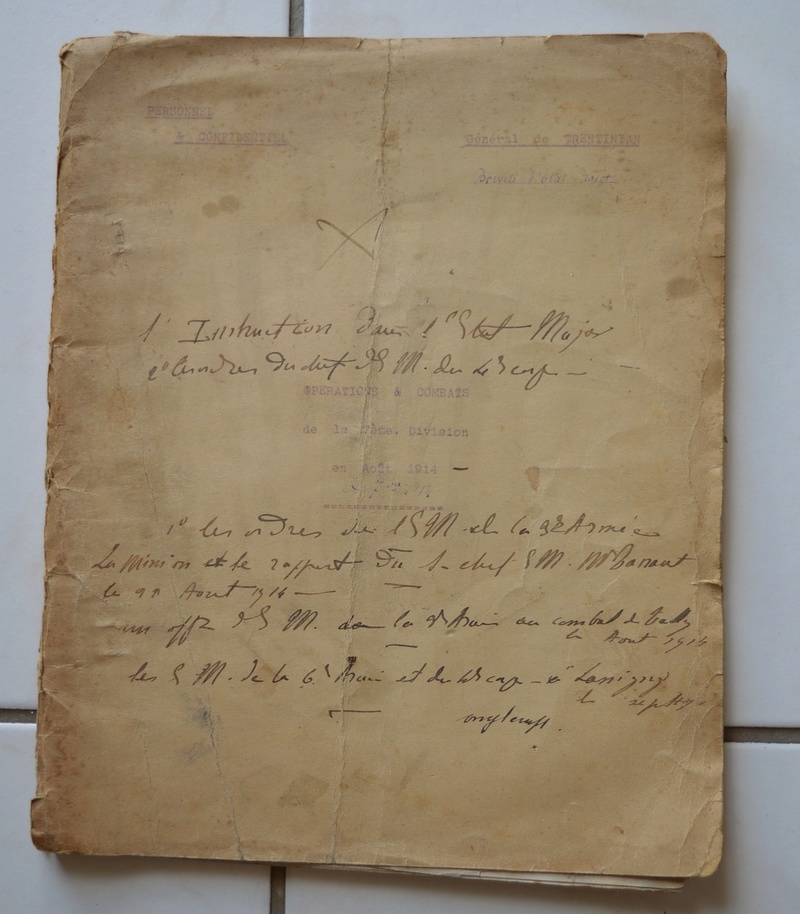 PERSONNEL
& CONFIDENTIEL
Général de TRENTINIAN
Brevet d'état major
l'Instruction dans l'Etat Major
2° les ordres du chef d'E M. du 4e corps
OPERATIONS & COMBATS
de la 7ème. Division
en Août 1914
1° les ordres de l'E M de la 3e Armée
La mission et le rapport du S-chef E M. Mr
le 22 Aout 1914
un offr d'E M. de la Armée au combat de
le Aout 1914
les E M. de la 6e Armée et du 4e corps à Lassigny
le sept